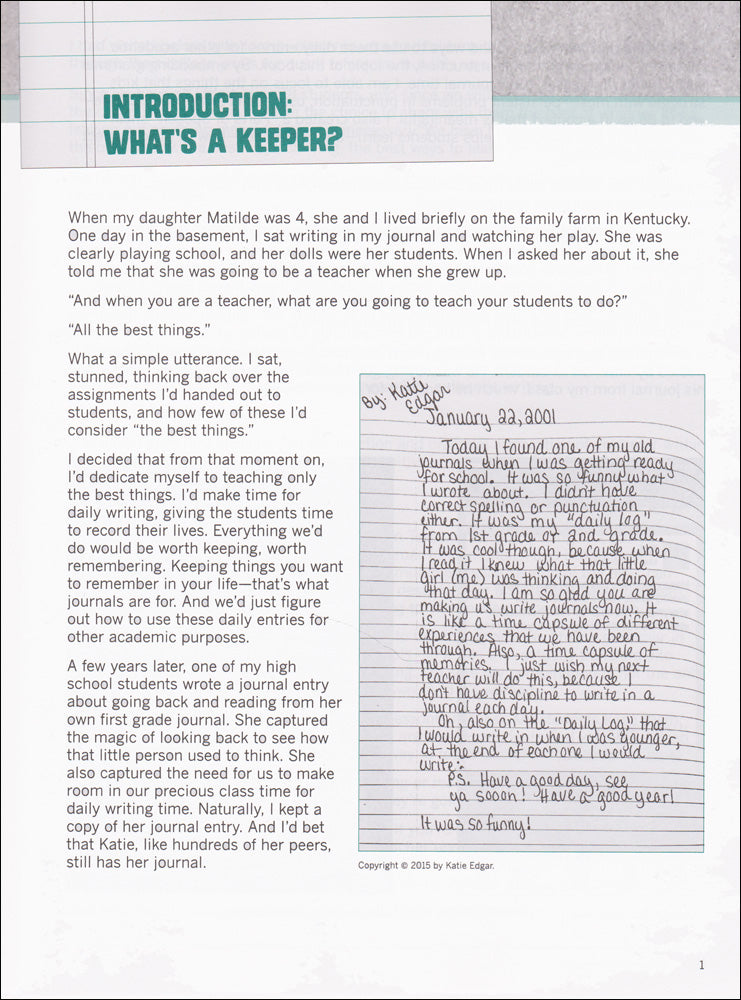 INTRODUCTION:
WHAT'S A KEEPER?
When my daughter Matilde was 4, she and I lived briefly on the family farm in Kentucky.
One day in the basement, I sat writing in my journal and watching her play. She was
clearly playing school, and her dolls were her students. When I asked her about it, she
told me that she was going to be a teacher when she grew up.
“And when you are a teacher, what are you going to teach your students to do?”
“All the best things.”
What a simple utterance. I sat,
stunned, thinking back over the
assignments I’d handed out to
students, and how few of these I’d
consider “the best things.”
I decided that from that moment on,
I’d dedicate myself to teaching only
the best things. I’d make time for
daily writing, giving the students time
to record their lives. Everything we’d
do would be worth keeping, worth
remembering. Keeping things you want
to remember in your life—that’s what
journals are for. And we’d just figure
out how to use these daily entries for
other academic purposes.
A few years later, one of my high
school students wrote a journal entry
about going back and reading from her
own first grade journal. She captured
the magic of looking back to see how
that little person used to think. She
also captured the need for us to make
room in our precious class time for
daily writing time. Naturally, I kept a
copy of her journal entry. And I’d bet
that Katie, like hundreds of her peers,
still has her journal.
By: Katie
Edgar
January 22, 2001
Today I found one of my old
journals when I was getting ready
for school. It was so funny what
I wrote about. I didn't have
correct spelling or punctuation
either. It was my "daily log"
from 1st grade or 2nd grade.
It was cool though, because when
I read it I knew what that little
girl (me) was thinking and doing
that day. I am so glad you are
making us write journals now. It
is like a time capsule of different
experiences that we have been
through. Also, a time capsule of
memories. I just wish my next
teacher will do this, because I
don't have discipline to write in a
journal each day.
Oh, also on the "Daily Log," that
I would write in when I was younger,
at the end of each one I would
write:
P.S. Have a good day, see
ya sooon! Have a good year!
It was so funny!
Copyright © 2015 by Katie Edgar.
1